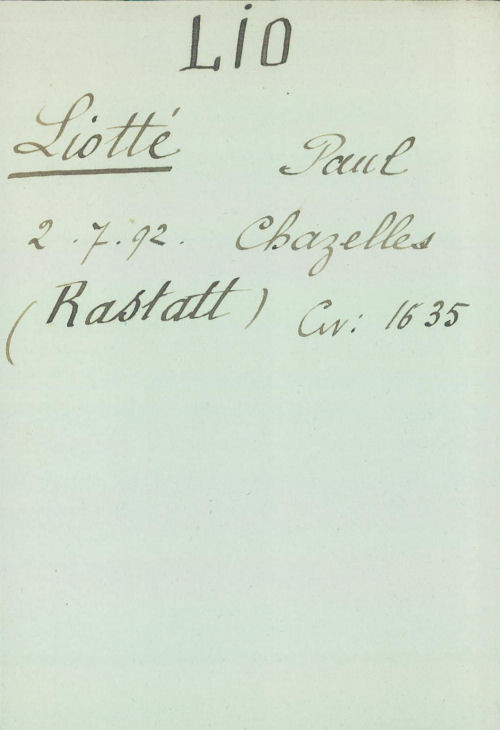 LiO
Liotté Paul
2.7.92. Chazelles
(Rastatt) Civ: 1635